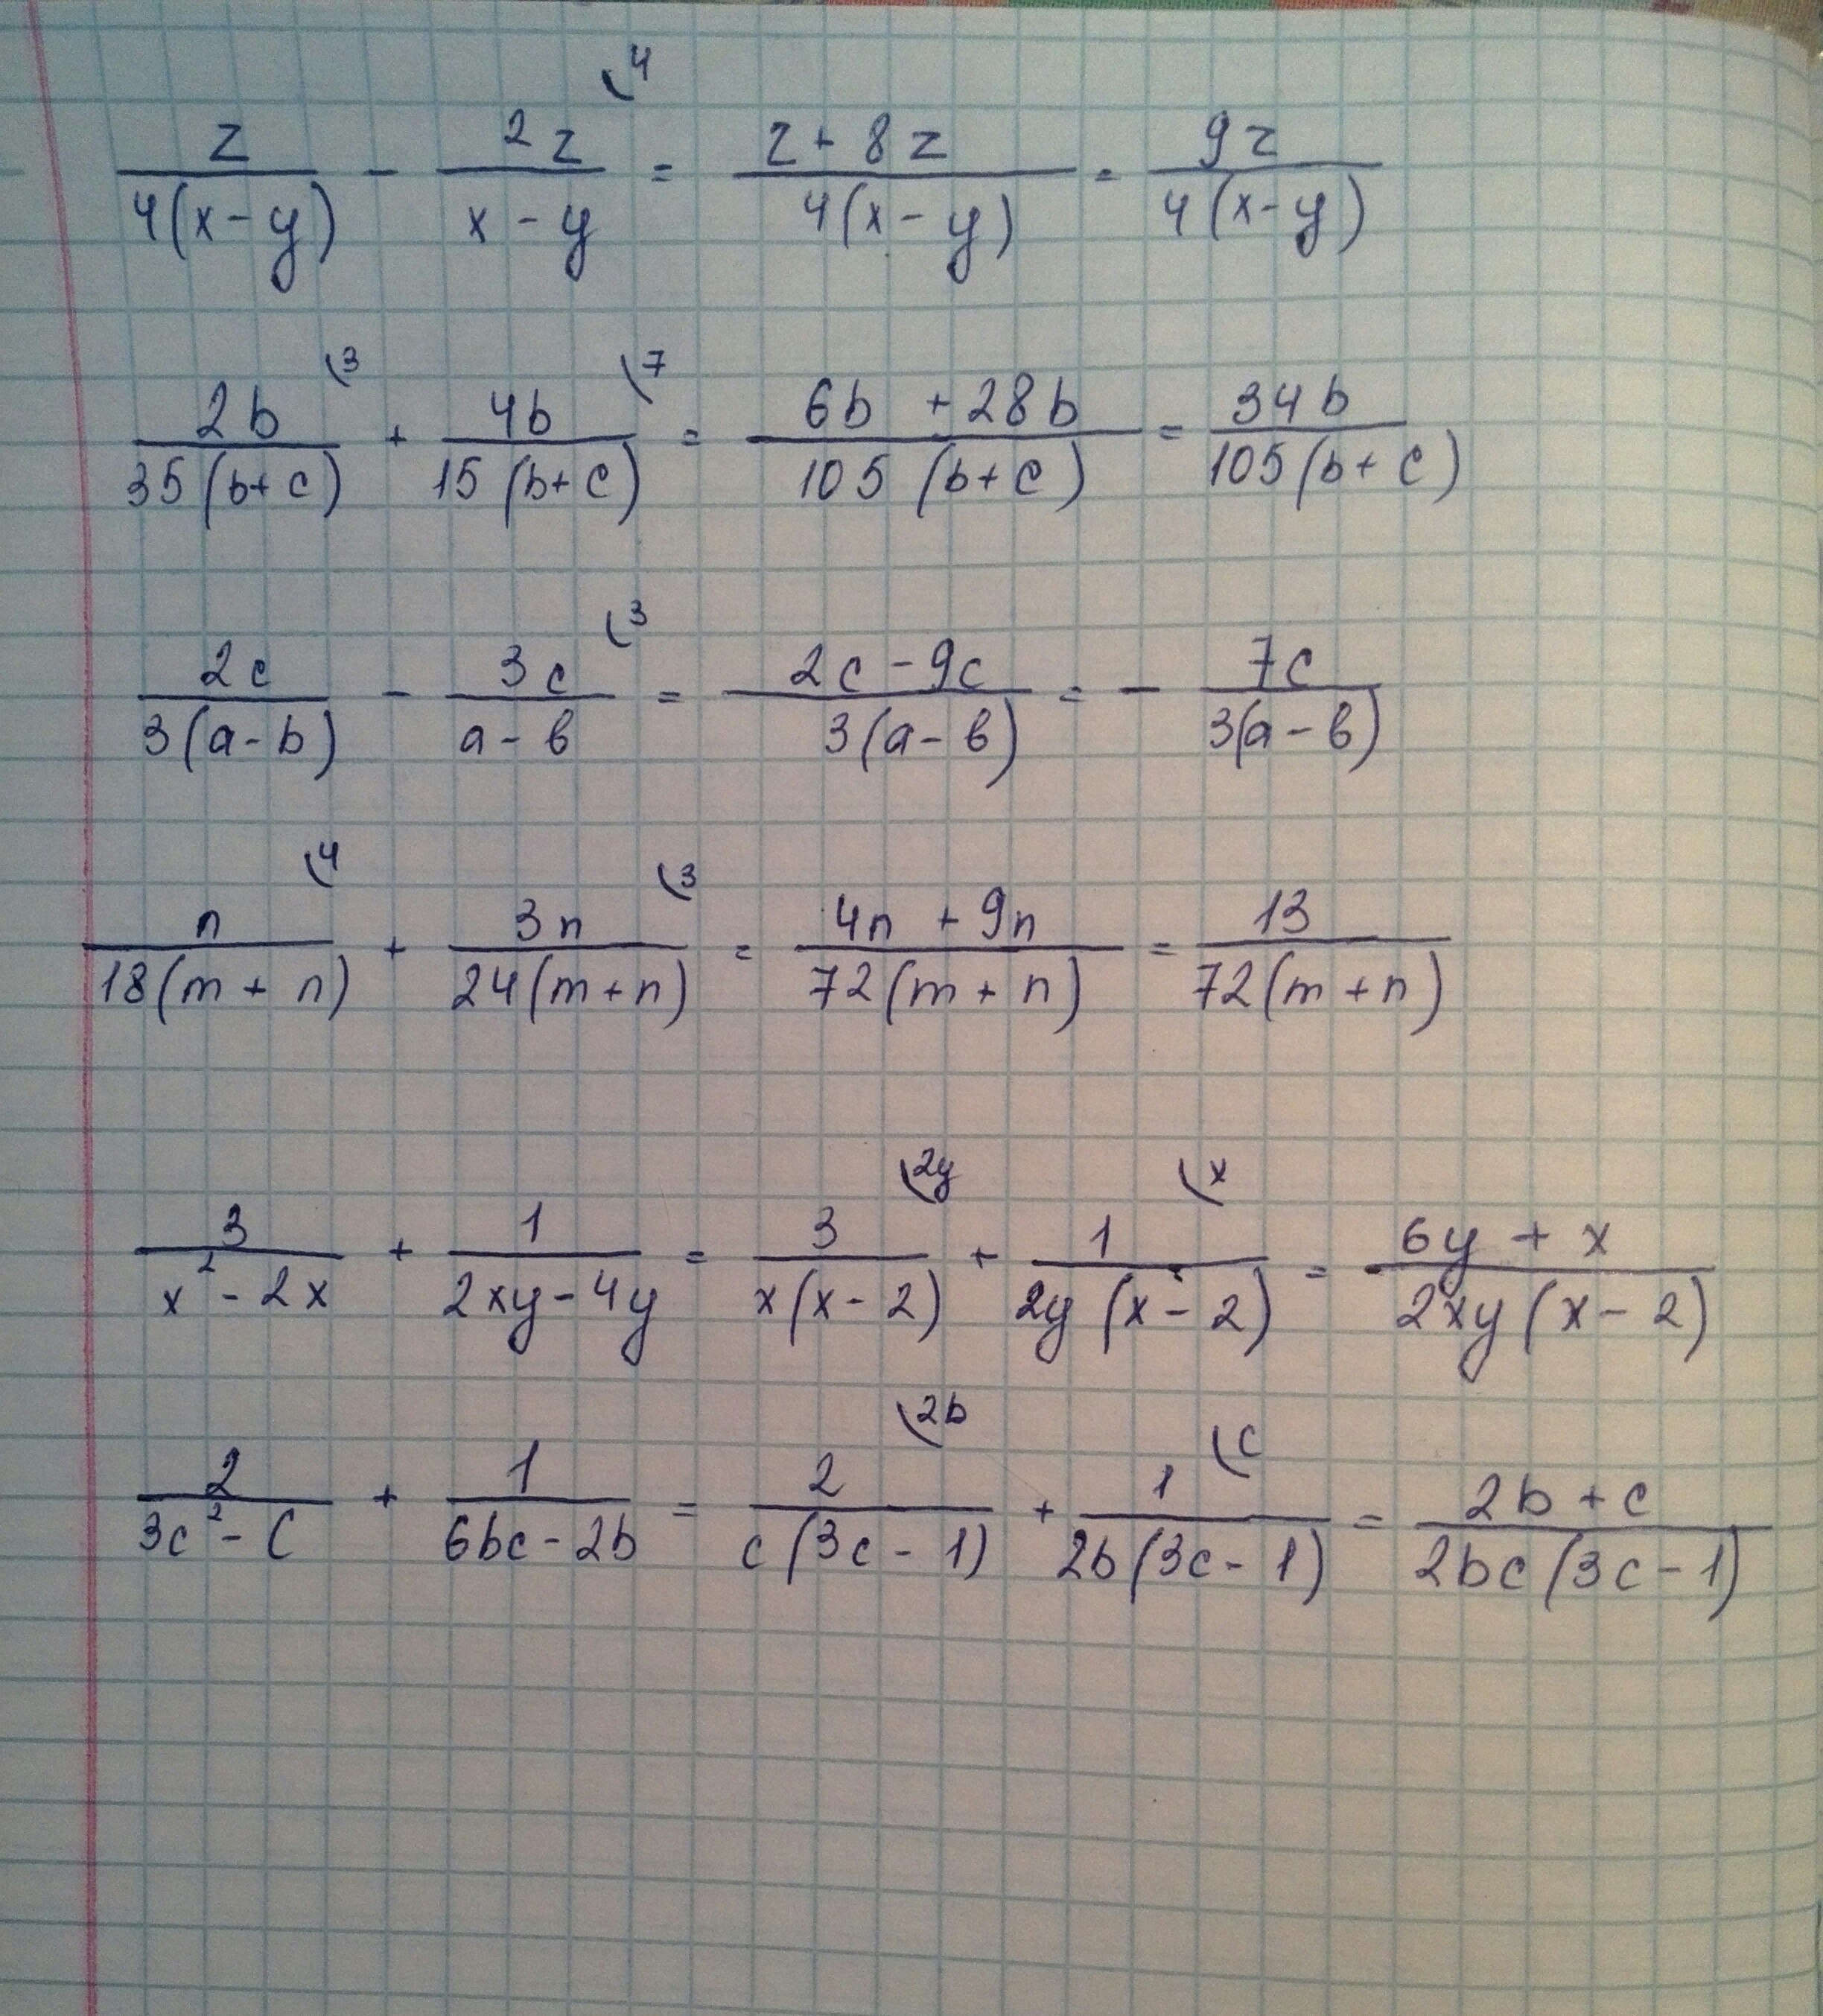 z/(4(x-y)) - 2z/(x-y) \4 = (z+8z)/(4(x-y)) = 9z/(4(x-y))
2b/(35(b+c)) \3 + 4b/(15(b+c)) \7 = (6b+28b)/(105(b+c)) = 34b/(105(b+c))
2c/(3(a-b)) - 3c/(a-b) \3 = (2c-9c)/(3(a-b)) = - 7c/(3(a-b))
n/(18(m+n)) \4 + 3n/(24(m+n)) \3 = (4n+9n)/(72(m+n)) = 13/(72(m+n))
3/(x²-2x) + 1/(2xy-4y) = 3/(x(x-2)) \2y + 1/(2y(x-2)) \x = (6y+x)/(2xy(x-2))
2/(3c²-c) + 1/(6bc-2b) = 2/(c(3c-1)) \2b + 1/(2b(3c-1)) \c = (2b+c)/(2bc(3c-1))